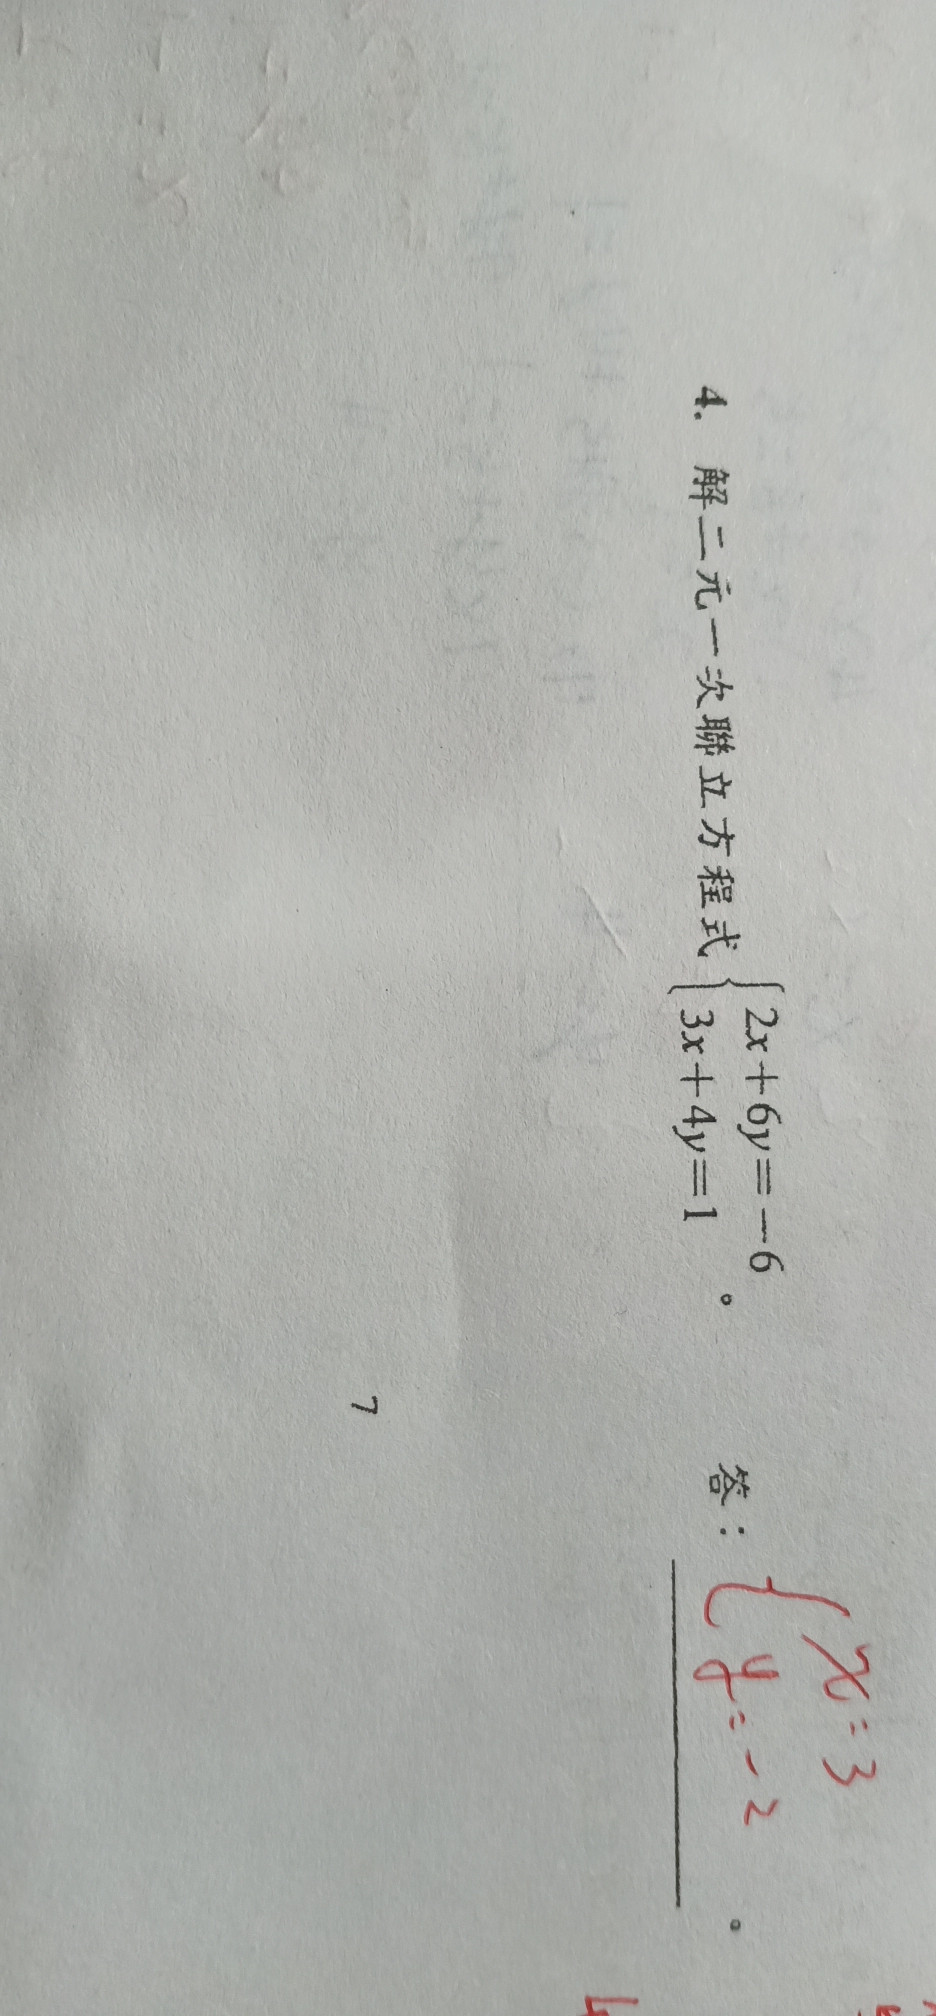 4. 解二元一次聯立方程式{2x+6y=-6
3x+4y=1 。 答：{x=3
y=-2 。
7